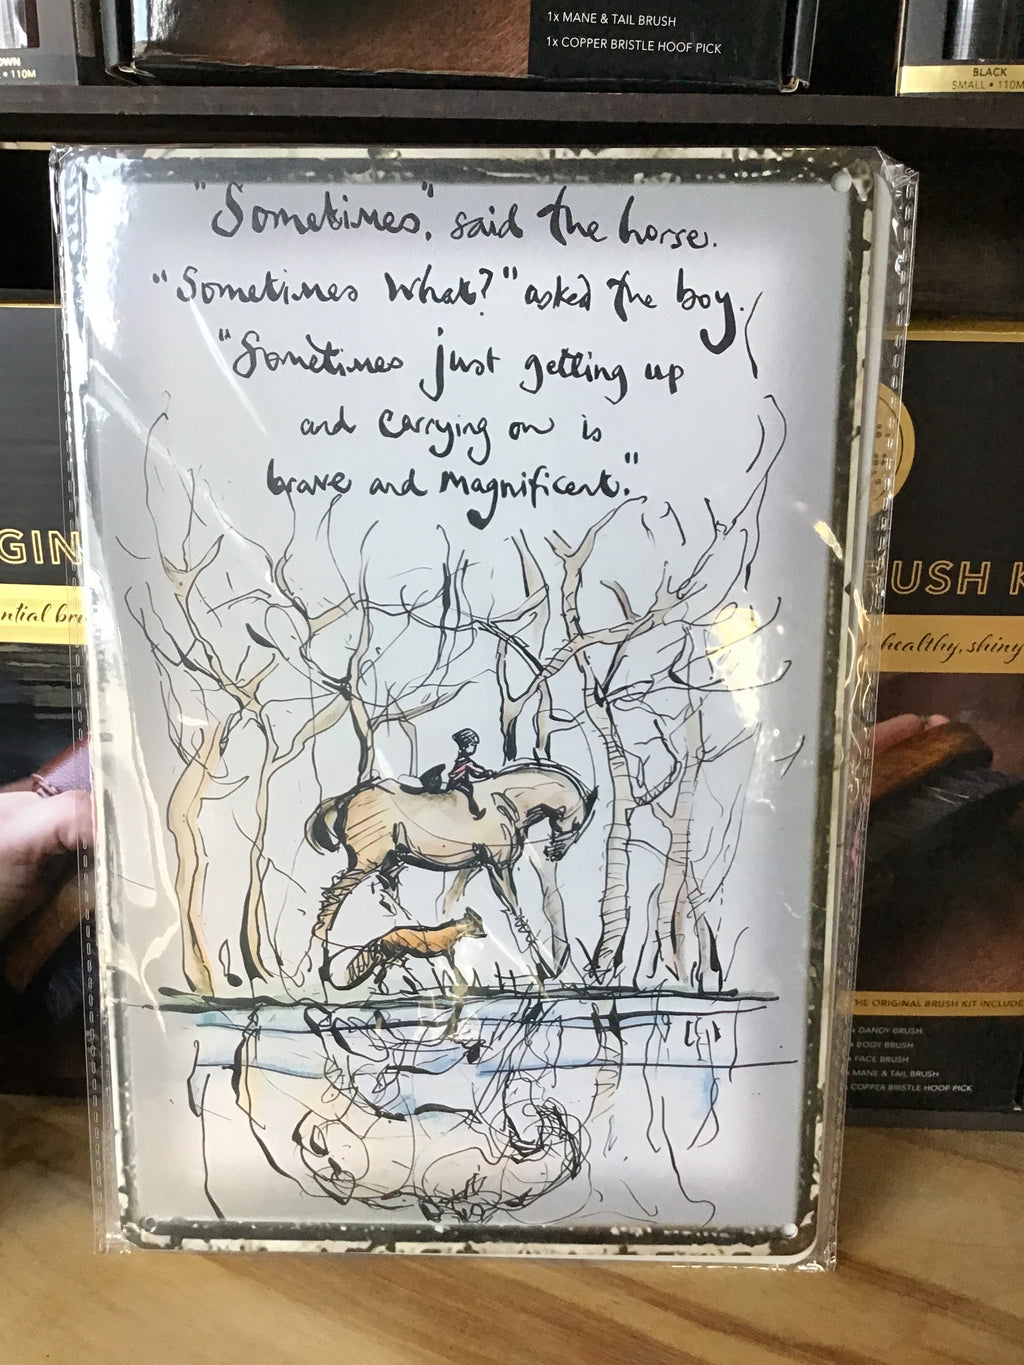 1x MANE & TAIL BRUSH
1x COPPER BRISTLE HOOF PICK
OWN
• 110M
BLACK
SMALL • 110M
"Sometimes", said the horse.
"Sometimes what?" asked the boy.
"Sometimes just getting up
and carrying on is
brave and magnificent."
GIN
ntial bru
USH K
healthy, shiny
THE ORIGINAL BRUSH KIT INCLUDE
DANDY BRUSH
BODY BRUSH
FACE BRUSH
MANE & TAIL BRUSH
COPPER BRISTLE HOOF PICK